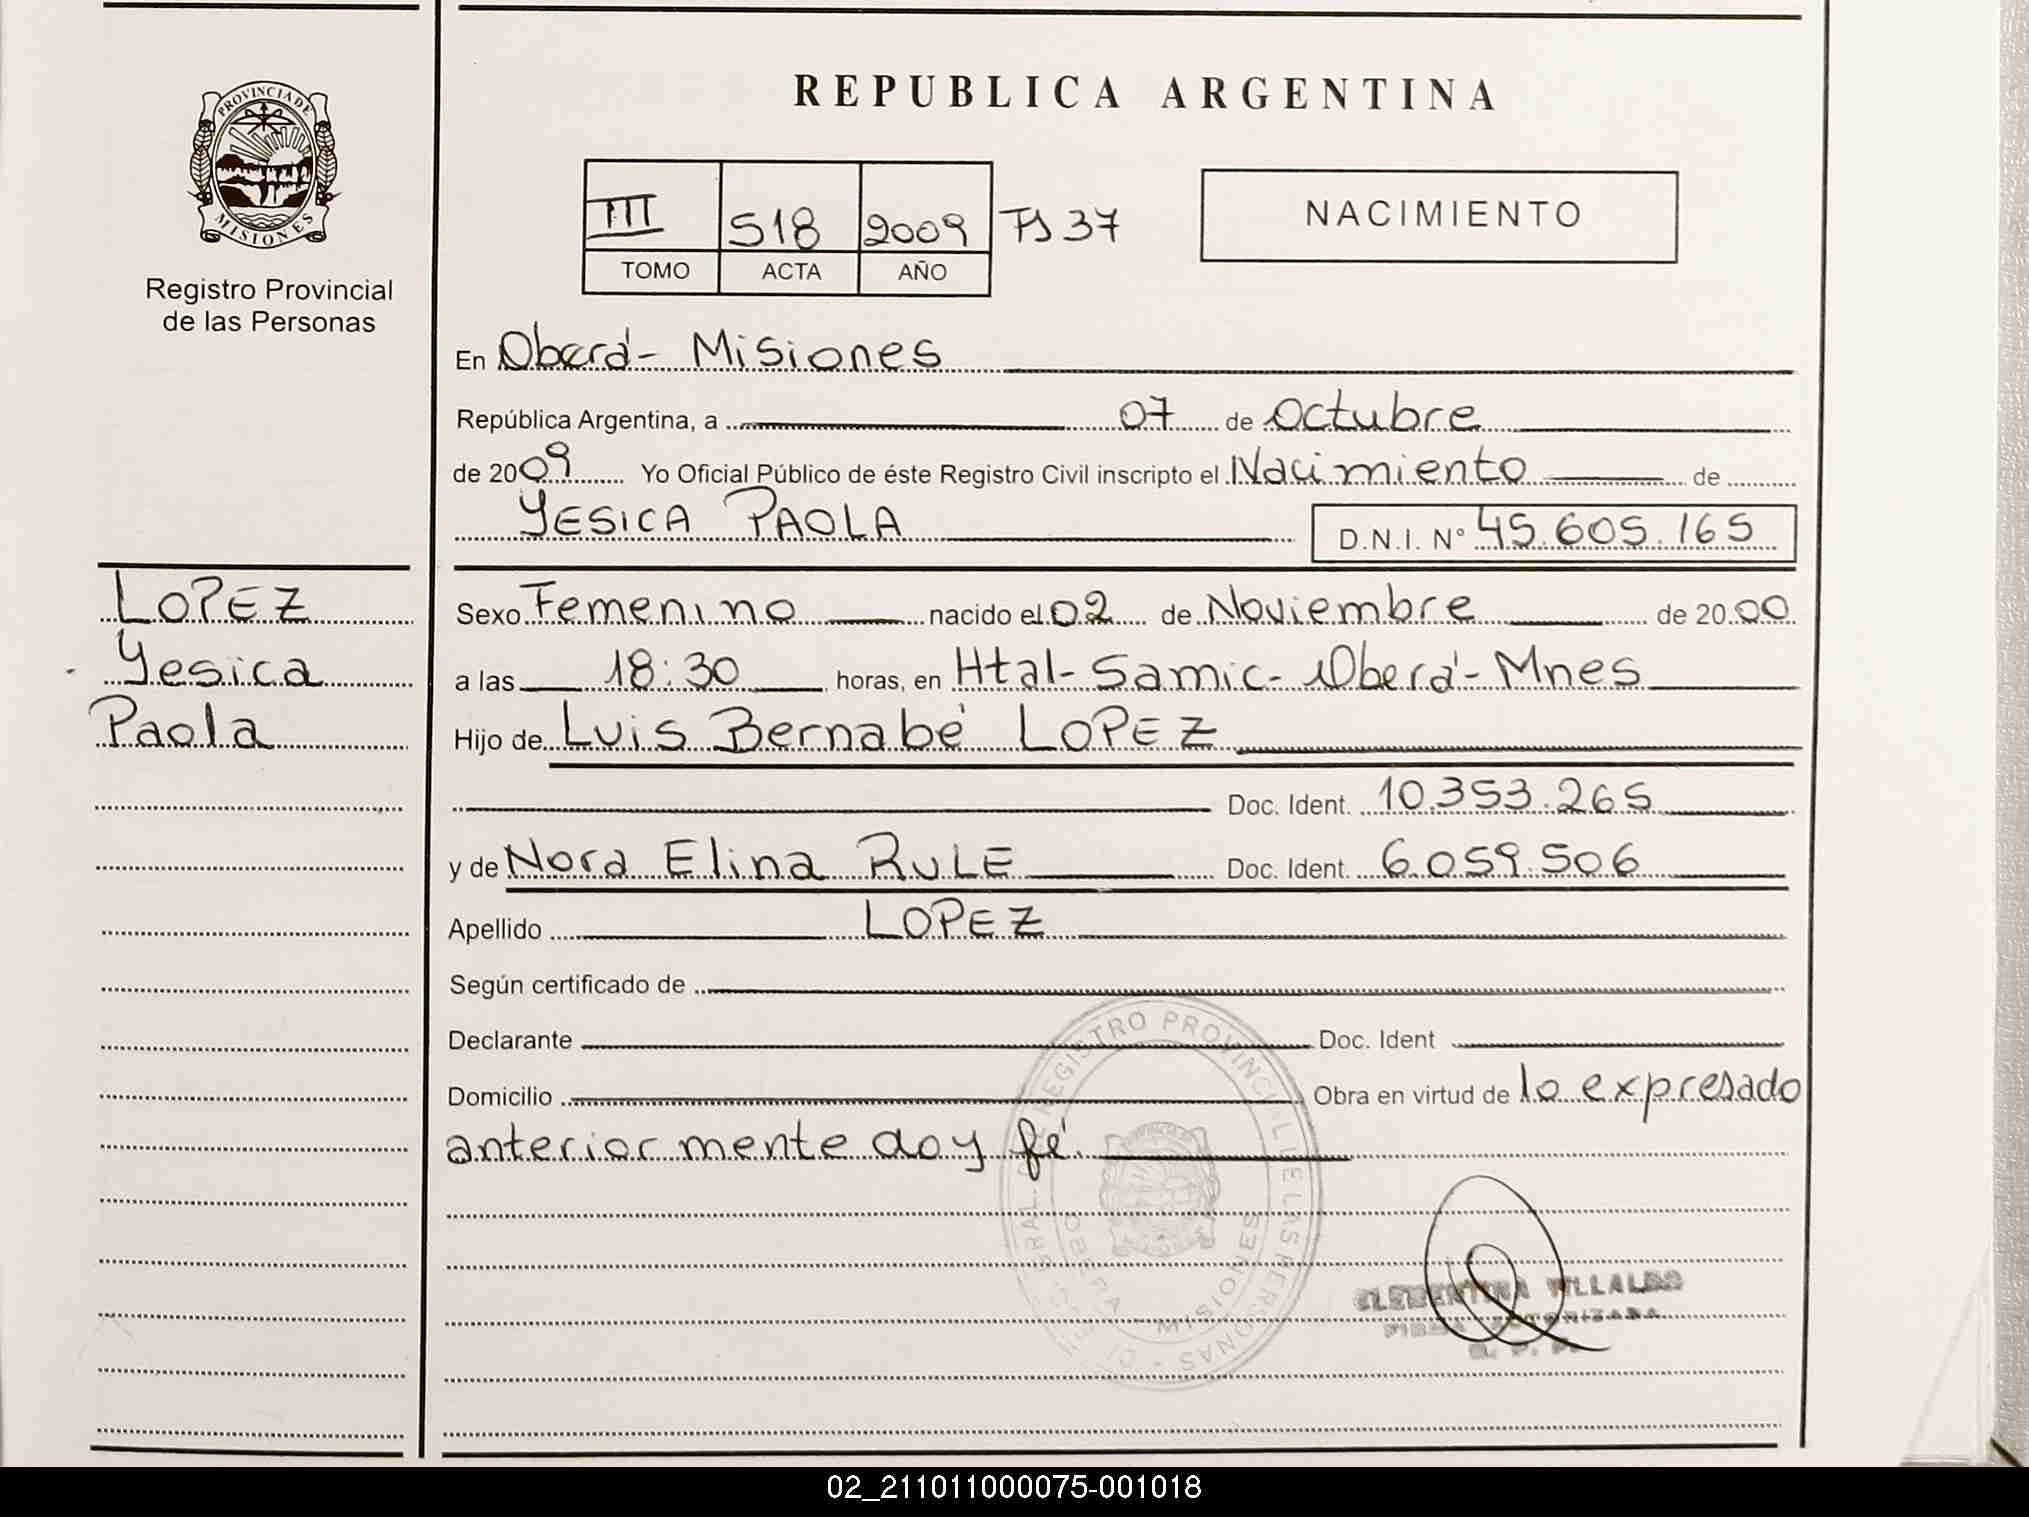 REPUBLICA ARGENTINA
PROVINCIA DE
MISIONES
Registro Provincial
de las Personas
III 518 2009 Fs 37
TOMO ACTA AÑO
NACIMIENTO
En Oberá - Misiones
República Argentina, a 07 de Octubre
de 2009 Yo Oficial Público de éste Registro Civil inscripto el Nacimiento de
YESICA PAOLA D.N.I. N° 45.605.165
LOPEZ
Yesica
Paola
Sexo Femenino nacido el 02 de Noviembre de 2000
a las 18:30 horas, en Htal - Samic - Oberá - Mnes
Hijo de Luis Bernabé LOPEZ
Doc. Ident. 10.353.265
y de Nora Elina RULE Doc. Ident. 6.059.506
Apellido LOPEZ
Según certificado de
Declarante Doc. Ident
Domicilio Obra en virtud de lo expresado
anteriormente doy fé.
REGISTRO PROVINCIAL DE LAS PERSONAS
OBERA - MISIONES
CLEMENTINA VILLALBA
FIRMA AUTORIZADA
02_211011000075-001018